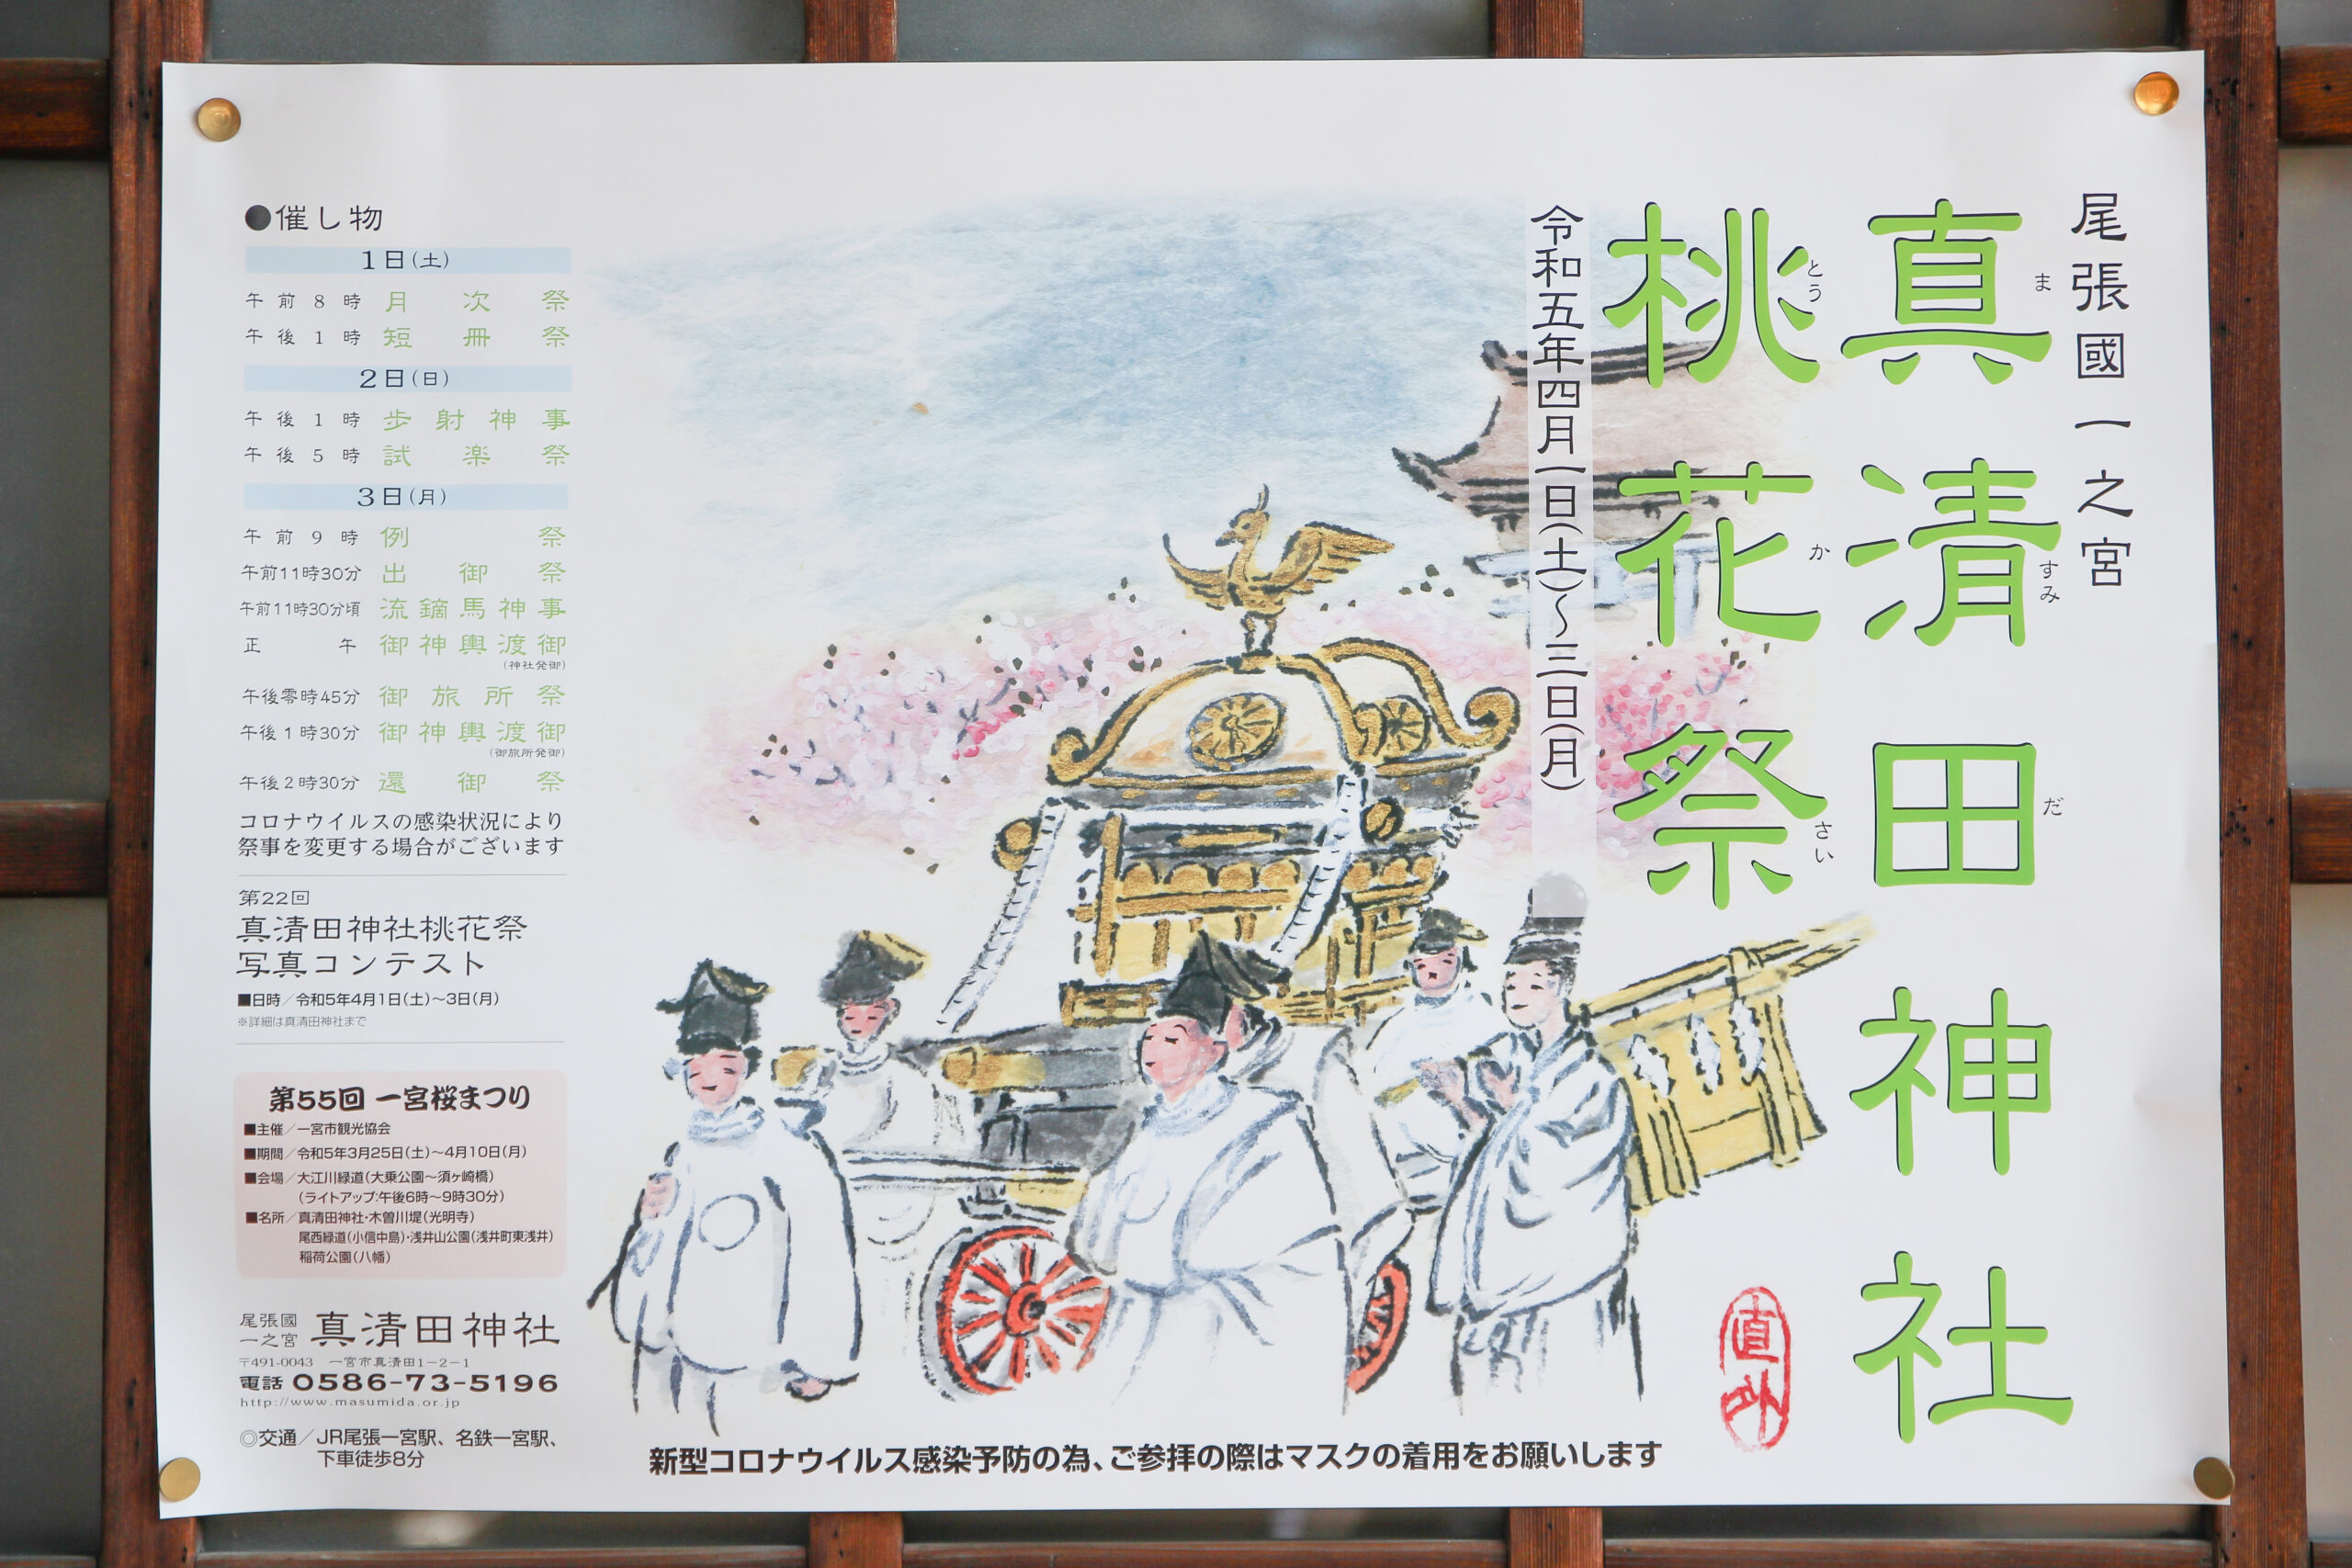 尾張國一之宮
真清田神社
ますみだ
桃花祭
とうかさい
令和五年四月一日(土)〜三日(月)
●催し物
1日(土)
午前8時 月次祭
午後1時 短冊祭
2日(日)
午後1時 歩射神事
午後5時 試楽祭
3日(月)
午前9時 例祭
午前11時30分 出御祭
午前11時30分頃 流鏑馬神事
正午 御神輿渡御
(神社発御)
午後零時45分 御旅所祭
午後1時30分 御神輿渡御
(御旅所発御)
午後2時30分 還御祭
コロナウイルスの感染状況により
祭事を変更する場合がございます
第22回
真清田神社桃花祭
写真コンテスト
■日時／令和5年4月1日(土)〜3日(月)
※詳細は真清田神社まで
第55回 一宮桜まつり
■主催／一宮市観光協会
■期間／令和5年3月25日(土)〜4月10日(月)
■会場／大江川緑道(大乗公園〜須ヶ崎橋)
(ライトアップ:午後6時〜9時30分)
■名所／真清田神社・木曽川堤(光明寺)
尾西緑道(小信中島)・浅井山公園(浅井町東浅井)
稲荷公園(八幡)
尾張國
一之宮 真清田神社
〒491-0043 一宮市真清田1−2−1
電話 0586-73-5196
http://www.masumida.or.jp
◎交通／JR尾張一宮駅、名鉄一宮駅、
下車徒歩8分
新型コロナウイルス感染予防の為、ご参拝の際はマスクの着用をお願いします